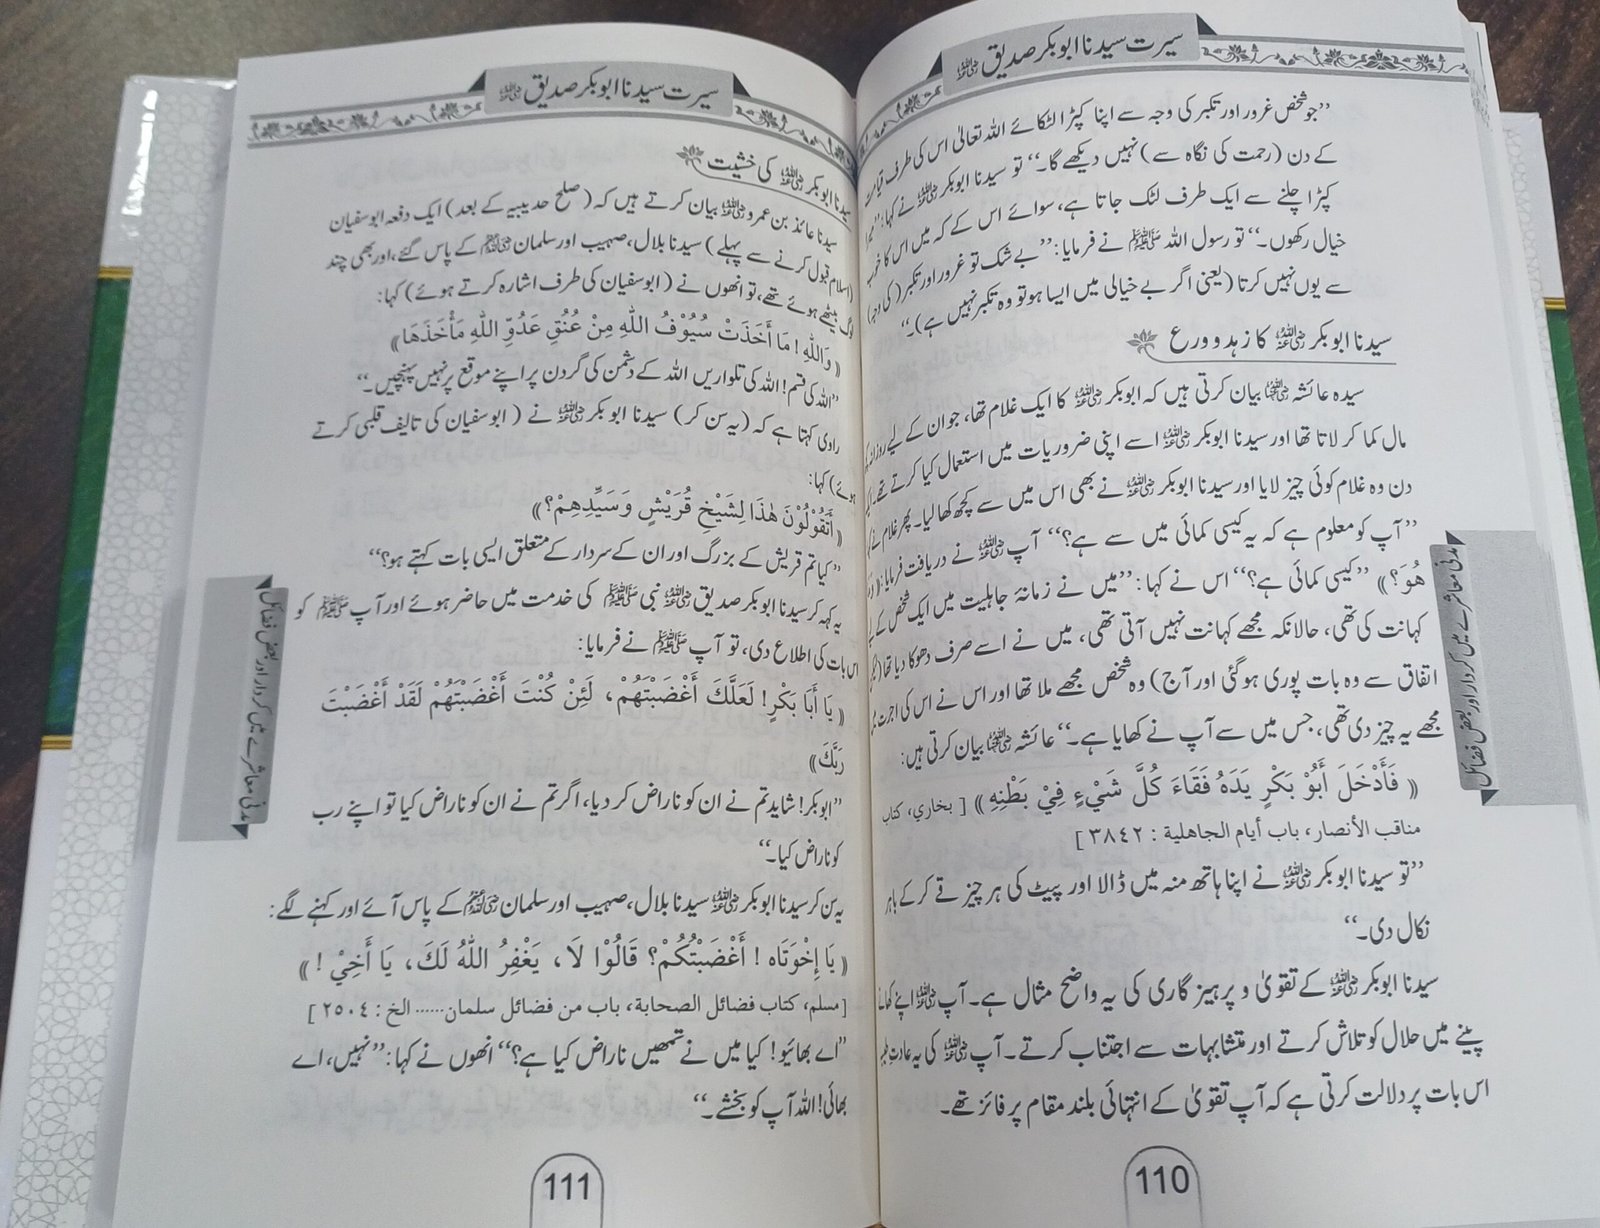 سیرت سیدنا ابو بکر صدیق رضی اللہ عنہ
’’جو شخص غرور اور تکبر کی وجہ سے اپنا کپڑا لٹکائے اللہ تعالیٰ اس کی طرف قیامت
کے دن (رحمت کی نگاہ سے) نہیں دیکھے گا۔‘‘ تو سیدنا ابوبکر رضی اللہ عنہ نے کہا: ’’میرا
کپڑا چلنے سے ایک طرف لٹک جاتا ہے، سوائے اس کے کہ میں اس کا خوب
خیال رکھوں۔‘‘ تو رسول اللہ ﷺ نے فرمایا: ’’بے شک تو غرور اور تکبر (کی وجہ)
سے یوں نہیں کرتا (یعنی اگر بے خیالی میں ایسا ہو تو وہ تکبر نہیں ہے)۔‘‘
سیدنا ابوبکر رضی اللہ عنہ کا زہد و ورع
سیدہ عائشہ رضی اللہ عنہا بیان کرتی ہیں کہ ابوبکر رضی اللہ عنہ کا ایک غلام تھا، جو ان کے لیے روزانہ
مال کما کر لاتا تھا اور سیدنا ابوبکر رضی اللہ عنہ اسے اپنی ضروریات میں استعمال کیا کرتے تھے۔
دن وہ غلام کوئی چیز لایا اور سیدنا ابوبکر رضی اللہ عنہ نے بھی اس میں سے کچھ کھا لیا۔ پھر غلام نے
’’آپ کو معلوم ہے کہ یہ کیسی کمائی میں سے ہے؟‘‘ آپ رضی اللہ عنہ نے دریافت فرمایا:
هُوَ؟)) ’’کیسی کمائی ہے؟‘‘ اس نے کہا: ’’میں نے زمانۂ جاہلیت میں ایک شخص کے لیے
کہانت کی تھی، حالانکہ مجھے کہانت نہیں آتی تھی، میں نے اسے صرف دھوکا دیا تھا (لیکن
اتفاق سے وہ بات پوری ہو گئی اور آج) وہ شخص مجھے ملا تھا اور اس نے اس کی اجرت
مجھے یہ چیز دی تھی، جس میں سے آپ نے کھایا ہے۔‘‘ عائشہ رضی اللہ عنہا بیان کرتی ہیں:
(( فَأَدْخَلَ أَبُوْ بَكْرٍ يَدَهُ فَقَاءَ كُلَّ شَيْءٍ فِيْ بَطْنِهِ )) [ بخاري، كتاب
مناقب الأنصار، باب أيام الجاهلية : ٣٨٤٢ ]
’’تو سیدنا ابوبکر رضی اللہ عنہ نے اپنا ہاتھ منہ میں ڈالا اور پیٹ کی ہر چیز قے کر کے باہر
نکال دی۔‘‘
سیدنا ابوبکر رضی اللہ عنہ کے تقویٰ و پرہیز گاری کی یہ واضح مثال ہے۔ آپ رضی اللہ عنہ اپنے کھانے
پینے میں حلال کو تلاش کرتے اور متشابہات سے اجتناب کرتے۔ آپ رضی اللہ عنہ کی یہ عادت
اس بات پر دلالت کرتی ہے کہ آپ تقویٰ کے انتہائی بلند مقام پر فائز تھے۔
مدنی معاشرے میں کردار اور بعض فضائل
110
سیرت سیدنا ابو بکر صدیق رضی اللہ عنہ
سیدنا ابوبکر رضی اللہ عنہ کی خشیت
سیدنا عائذ بن عمرو رضی اللہ عنہ بیان کرتے ہیں کہ (صلح حدیبیہ کے بعد) ایک دفعہ ابوسفیان
(اسلام قبول کرنے سے پہلے) سیدنا بلال، صہیب اور سلمان رضی اللہ عنہم کے پاس گئے، اور بھی چند
لوگ بیٹھے ہوئے تھے، تو انھوں نے (ابوسفیان کی طرف اشارہ کرتے ہوئے) کہا:
(( وَاللّٰهِ ! مَا أَخَذَتْ سُيُوْفُ اللّٰهِ مِنْ عُنُقِ عَدُوِّ اللّٰهِ مَأْخَذَهَا ))
’’اللہ کی قسم! اللہ کی تلواریں اللہ کے دشمن کی گردن پر اپنے موقع پر نہیں پہنچیں۔‘‘
راوی کہتا ہے کہ (یہ سن کر) سیدنا ابوبکر رضی اللہ عنہ نے (ابوسفیان کی تالیف قلبی کرتے
ہوئے) کہا:
(( أَتَقُوْلُوْنَ هٰذَا لِشَيْخِ قُرَيْشٍ وَسَيِّدِهِمْ؟ ))
’’کیا تم قریش کے بزرگ اور ان کے سردار کے متعلق ایسی بات کہتے ہو؟‘‘
یہ کہہ کر سیدنا ابوبکر صدیق رضی اللہ عنہ نبی ﷺ کی خدمت میں حاضر ہوئے اور آپ ﷺ کو
اس بات کی اطلاع دی، تو آپ ﷺ نے فرمایا:
(( يَا أَبَا بَكْرٍ ! لَعَلَّكَ أَغْضَبْتَهُمْ، لَئِنْ كُنْتَ أَغْضَبْتَهُمْ لَقَدْ أَغْضَبْتَ
رَبَّكَ ))
’’ابوبکر! شاید تم نے ان کو ناراض کر دیا، اگر تم نے ان کو ناراض کیا تو اپنے رب
کو ناراض کیا۔‘‘
یہ سن کر سیدنا ابوبکر رضی اللہ عنہ سیدنا بلال، صہیب اور سلمان رضی اللہ عنہم کے پاس آئے اور کہنے لگے:
(( يَا إِخْوَتَاه ! أَغْضَبْتُكُمْ؟ قَالُوْا لَا، يَغْفِرُ اللّٰهُ لَكَ، يَا أَخِيْ ! ))
[مسلم، كتاب فضائل الصحابة، باب من فضائل سلمان...... الخ : ٢٥٠٤ ]
’’اے بھائیو! کیا میں نے تمھیں ناراض کیا ہے؟‘‘ انھوں نے کہا: ’’نہیں، اے
بھائی! اللہ آپ کو بخشے۔‘‘
مدنی معاشرے میں کردار اور بعض فضائل
111